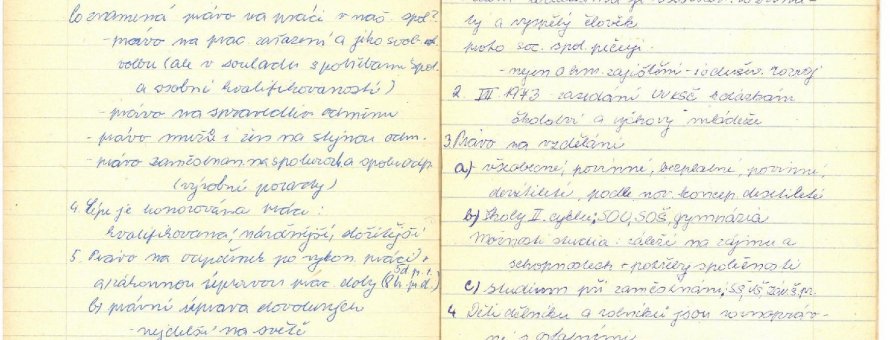 Co znamená právo na práci v naš. spol?
- právo na prac. zařazení a jeho svob.
volbu (ale v souladu s potřebami spol.
a osobní kvalifikovaností)
- právo na spravedliv. odměnu
- právo mužů i žen na stejnou odm.
- právo zaměstnan. na spolurozh. a
(výrobní porady)
4. Lépe je honorována práce:
kvalifikovaná, náročnější, důležitější
5. Právo na odpočinek po vykon. práci
5d p. t.
a) zákonnou úpravou prac. doby (8h. p.d.)
b) právní úprava dovolených
- nejdelší na světě
a vyspělý člověk
proto soc. spol. pečuje
- nejen o hm. zajištění - i o duševn. rozvoj
2. VII. 1973 - zasedání ÚV KSČ k otázkám
školství a výchovy mládeže
3. Právo na vzdělání
a) všeobecné, povinné, bezplatné, povinné,
devítileté, podle nov. koncep. desetileté
b) školy II. cyklu: SOU, SOŠ, gymnázia
Možnosti studia: záleží na zájmu a
schopnostech + potřeby společnosti
c) studium při zaměstnání: SŠ, VŠ
4. Děti dělníků a rolníků jsou rovnopráv-
né s ostatními